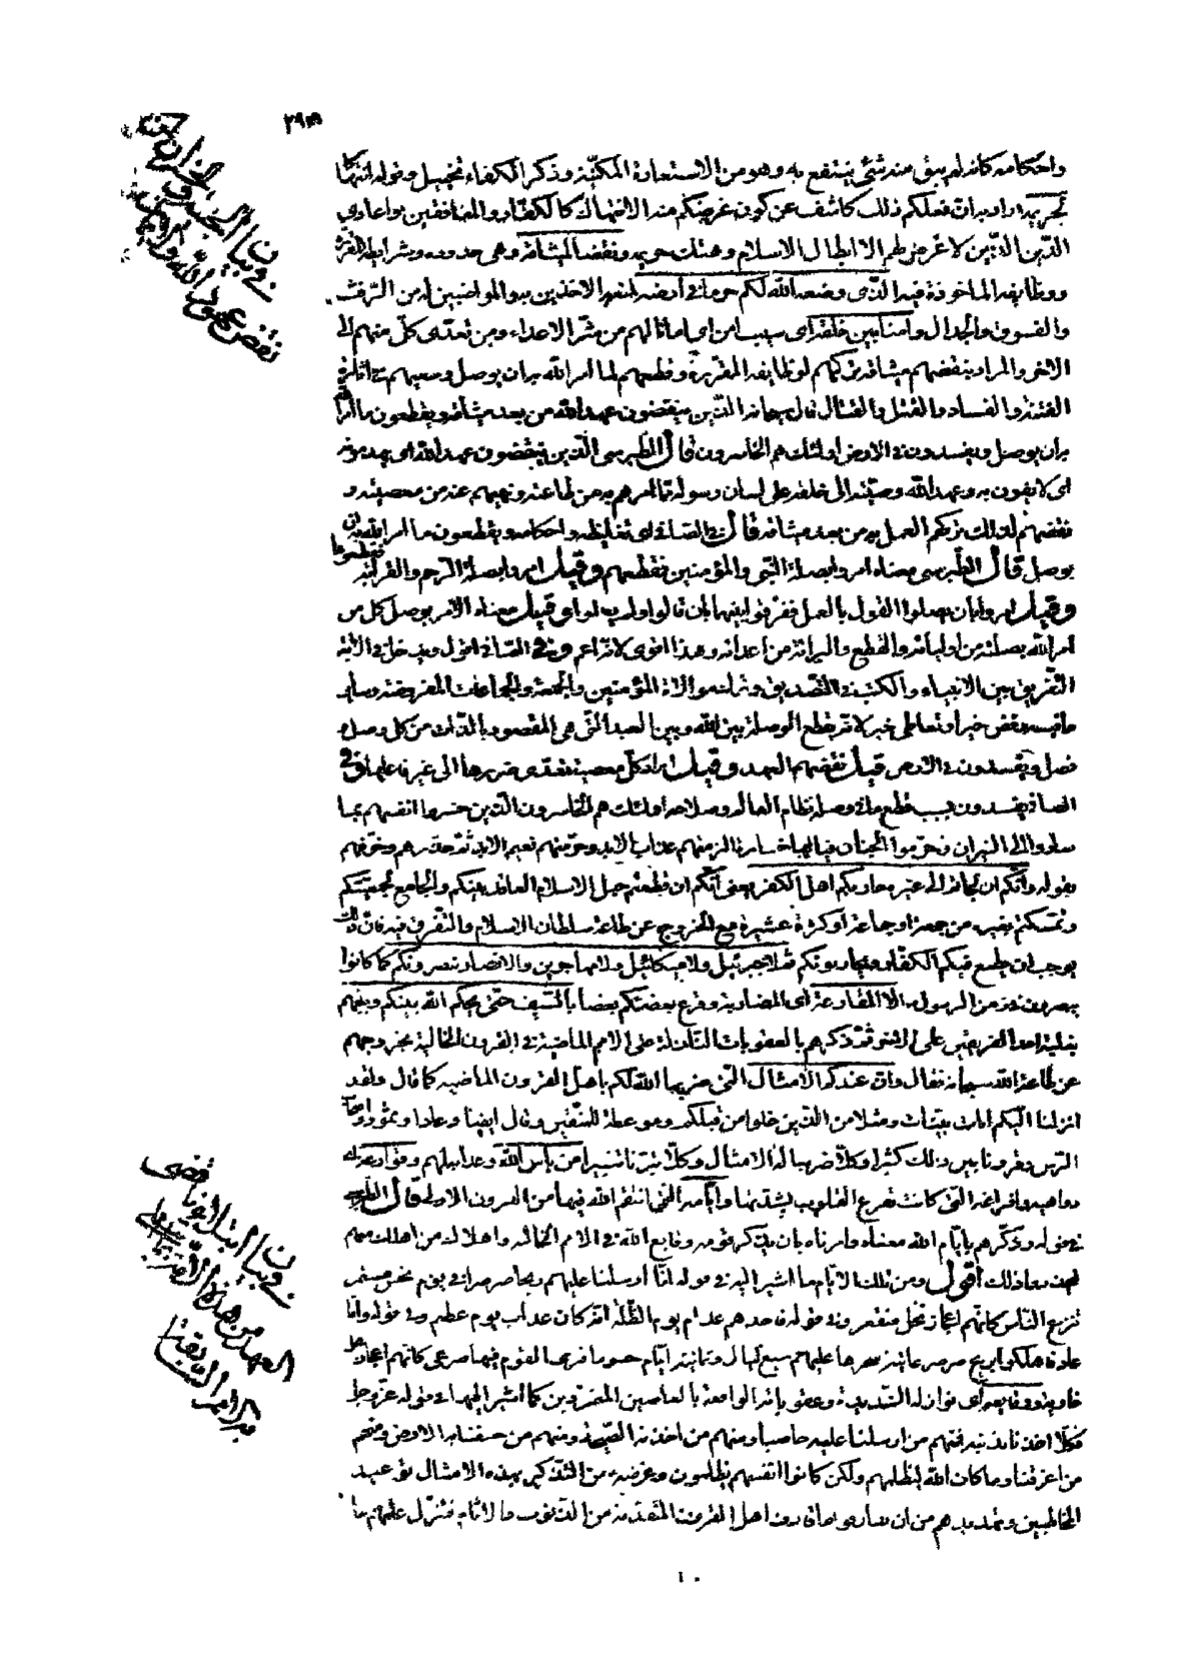 واحكامه كانه لم يبق منه شئ ينتفع به وهو من الاستعارة المكنية وذكر الكفاء تخييل وقوله انتهاكا
لحريمه اراد به ان فعلكم ذلك كاشف عن كون غرضكم منه الانتهاك كالكفار والمنافقين بواعادي
الدين الذين لا غرض لهم الا ابطال الاسلام وهتك حريمه ونقضا لميثاقه وهى حدوده وشرايطه المقررة
ووظايفه الماخوذة فيه الذى وضعه الله لكم حرما في ارضه لمنعه الاخذين به والمواظبين له من الرفث
والفسوق والجدال وامنا بين خلقه اى سبب امن اى امانا لهم من شر الاعداء ومن تعدى كل منهم الى
الاخر والمراد بنقضهم ميثاقه تركهم لوظايفه المقررة وقطعهم لما امر الله به ان يوصل وسعيهم في اثارة
الفتنة والفساد والقتل والقتال قال سبحانه الذين ينقضون عهد الله من بعد ميثاقه ويقطعون ما امر الله
به ان يوصل ويفسدون في الارض اولئك هم الخاسرون قال الطبرسى الذين ينقضون عهد الله اى يهدمونه
اى لا يفون به وعهد الله وصيته الى خلقه على لسان رسوله بما امرهم به من طاعته ونهيهم عنه من معصيته و
نقضهم لذلك تركهم العمل به من بعد ميثاقه قال في الصافي اى تغليظه واحكامه ويقطعون ما امر الله به ان
يوصل قال الطبرسى معناه امروا بصلة النبى والمؤمنين فقطعوهم وقيل امروا بصلة الرحم والقرابة فقطعوها
وقيل امروا بان يصلوا القول بالعمل ففرقوا بينهما بان قالوا ولم يعملوا وقيل معناه الامر بوصل كل من
امر الله بصلته من اوليائه والقطع والبرائة من اعدائه وهذا اقوى لانه اعم وفي الصافي اقول ويدخل في الآية
التفريق بين الانبياء والكتب في التصديق وترك موالاة المؤمنين والجمعة والجماعات المفروضة وساير
ما فيه رفض خير او تعاطى شر لانه يقطع الوصلة بين الله وبين العبد التى هى المقصود بالذات من كل وصل و
فصل ويفسدون في الارض قيل نقضهم العهد وقيل اراد كل معصية تعدى ضررها الى غير فاعلها وفي
الصافي يفسدون بسبب قطع ما في وصله نظام العالم وصلاحه اولئك هم الخاسرون الذين خسروا انفسهم بما
صاروا الى النيران وحرموا الجنان فيالها خسارة الزمتهم عذاب الابد وحرمتهم نعيم الابد ثم حذرهم وخوفهم
بقوله وانكم ان لجاتم الى غيره حاربكم اهل الكفر يعنى انكم ان قطعتم حبل الاسلام العاقد بينكم والجامع لجمعيتكم
وتمسكتم بغيره من حمية او جماعة او كثرة عشيرة مع الخروج عن طاعة سلطان الاسلام والتفرق فيه فان ذلك
يوجب ان يطمع فيكم الكفار ويحاربونكم ثم لا جبرئيل ولا ميكائيل ولا مهاجرين ولا انصار ينصرونكم كما كانوا
ينصرون في زمن الرسول الا المقارعة اى المضاربة وقرع بعضكم بعضا بالسيف حتى يحكم الله بينكم وبينهم
بغلبة احد الفريقين على الاخر ثم ذكرهم بالعقوبات النازلة على الامم الماضية في القرون الخالية بخروجهم
عن طاعة الله سبحانه فقال وان عندكم الامثال التى ضربها الله لكم باهل القرون الماضيه كما قال ولقد
انزلنا اليكم ايات بينات ومثلا من الذين خلوا من قبلكم وموعظة للمتقين وقال ايضا وعادا وثمود واصحاب
الرس وقرونا بين ذلك كثيرا وكلا ضربنا له الامثال وكلا تبرنا تتبيرا من بأس الله وعذابه لهم وقوارعه اى
دواهيه وافزاعه التى كانت تقرع القلوب بشدتها وايامه التى انتقم الله فيها من القرون الاولى قال الطبرسى
في قوله وذكرهم بايام الله معناه وامرناه بان يذكر قومه وقايع الله في الامم الخاليه واهلاك من اهلك منهم
ليحذروا ذلك اقول ومن تلك الايام ما اشير اليه في قوله انا ارسلنا عليهم ريحا صرصرا في يوم نحس مستمر
تنزع الناس كانهم اعجاز نخل منقعر وفي قوله فاخذهم عذاب يوم الظلة انه كان عذاب يوم عظيم وفي قوله واما
عاد فاهلكوا بريح صرصر عاتية سخرها عليهم سبع ليال وثمانية ايام حسوما فترى القوم فيها صرعى كانهم اعجاز نخل
خاوية ووقايعه اى نوازله الشديدة وعقوباته الواقعة بالعاصين المتمردين كما اشير اليها في قوله عز وجل
فكلا اخذنا بذنبه فمنهم من ارسلنا عليه حاصبا ومنهم من اخذته الصيحة ومنهم من خسفنا به الارض ومنهم
من اغرقنا وما كان الله ليظلمهم ولكن كانوا انفسهم يظلمون وغرضه من التذكير بهذه الامثال توعيد
الخاطبين وتهديدهم من ان
في بيان
نقض عهود الله
في بيان ابتلائنا
العهد من هذه
١٠